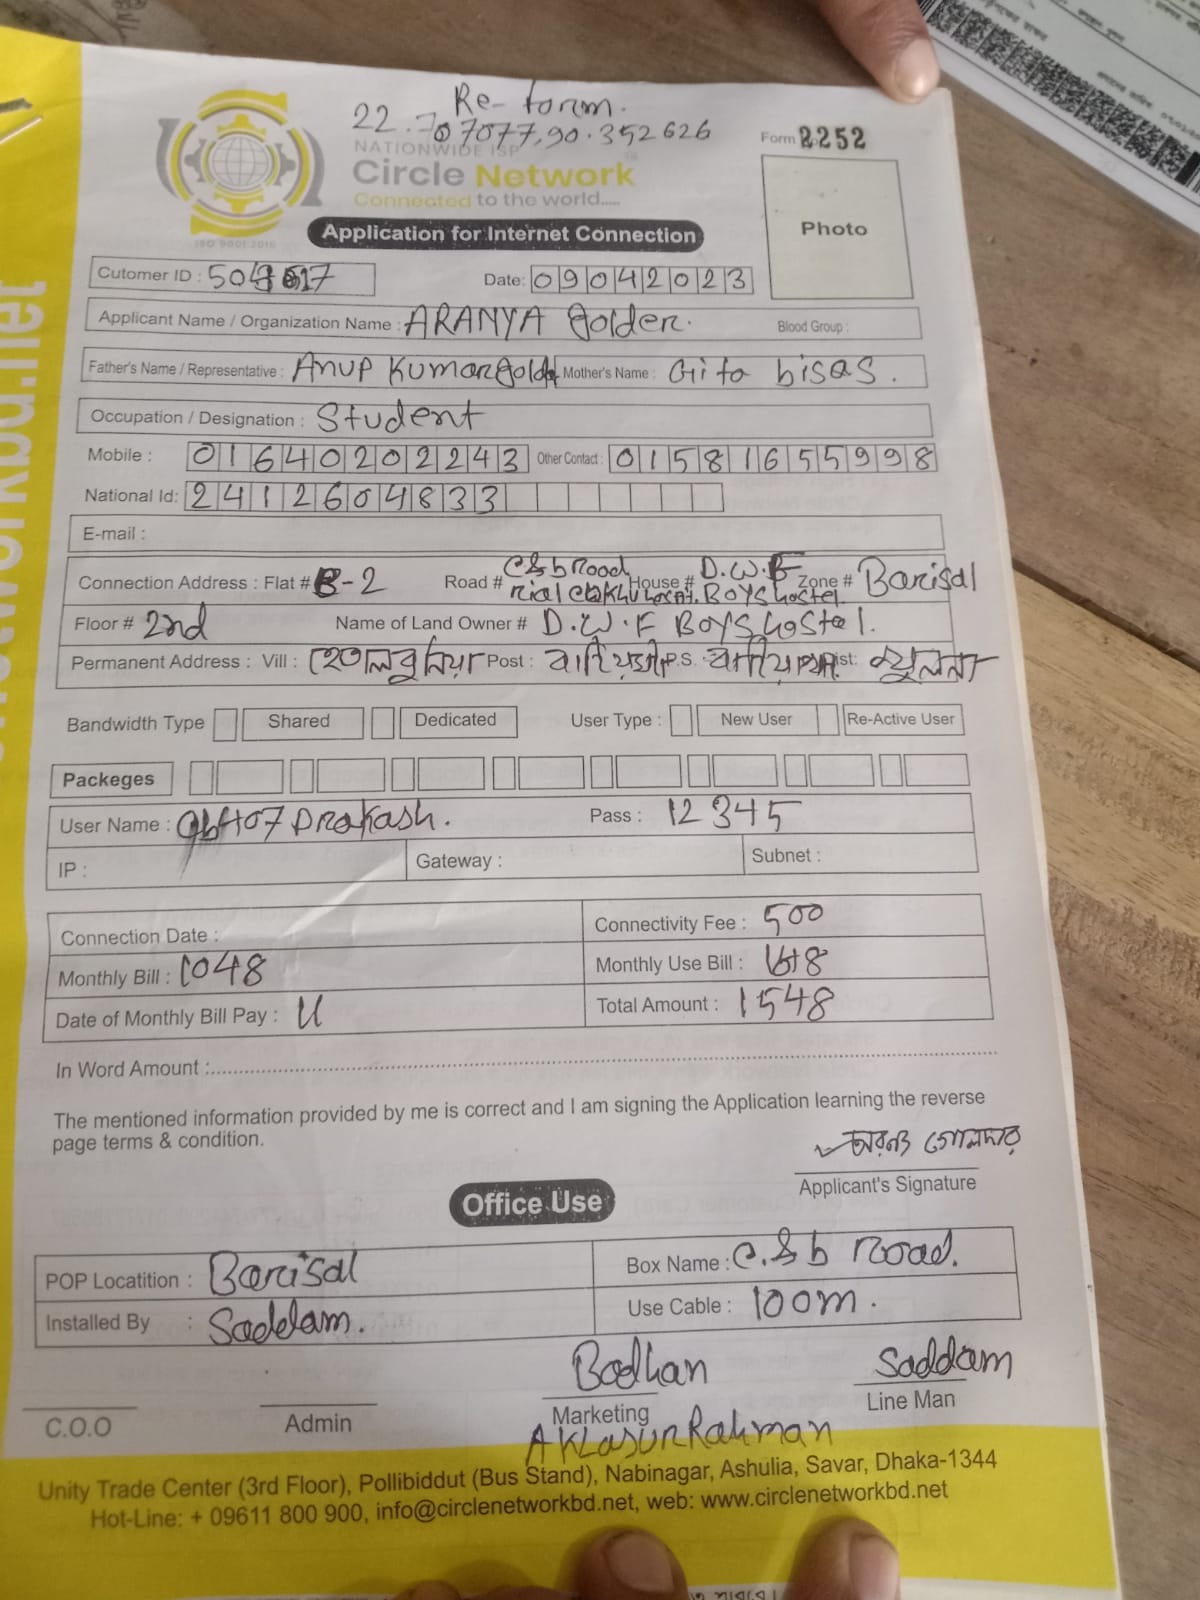 Re-form.
22.707077,90.352626
NATIONWIDE ISP
Circle Network
Connected to the world.....
ISO 9001:2015
Form 2252
Photo
Application for Internet Connection
Cutomer ID : Date: 09042023
Applicant Name / Organization Name : ARANYA Golder. Blood Group :
Father's Name / Representative : Anup Kumar Mother's Name : Gita bisas.
Occupation / Designation : Student
Mobile : 01640202243 Other Contact : 01581655998
National Id: 2412604833
E-mail :
Connection Address : Flat # B-2 Road # C&b Rood House # D.W.F Boys hostel Zone # Barisal
Floor # 2nd Name of Land Owner # D.W.F Boys hostel.
Permanent Address : Vill : হেতালবুনিয়া Post : P.S. Dist: খুলনা
Bandwidth Type Shared Dedicated User Type : New User Re-Active User
Packeges
User Name : Pass : 12345
IP : Gateway : Subnet :
Connection Date : Connectivity Fee : 500
Monthly Bill : 1048 Monthly Use Bill :
Date of Monthly Bill Pay : Total Amount : 1548
In Word Amount :
The mentioned information provided by me is correct and I am signing the Application learning the reverse
page terms & condition.
অরণ্য গোলদার
Applicant's Signature
Office Use
POP Locatition : Barisal Box Name : C.&b Road.
Installed By : Saddam. Use Cable : 100m.
Bodhan Saddam
C.O.O Admin Marketing Line Man
AKLasurRahman
Unity Trade Center (3rd Floor), Pollibiddut (Bus Stand), Nabinagar, Ashulia, Savar, Dhaka-1344
Hot-Line: + 09611 800 900, info@circlenetworkbd.net, web: www.circlenetworkbd.net